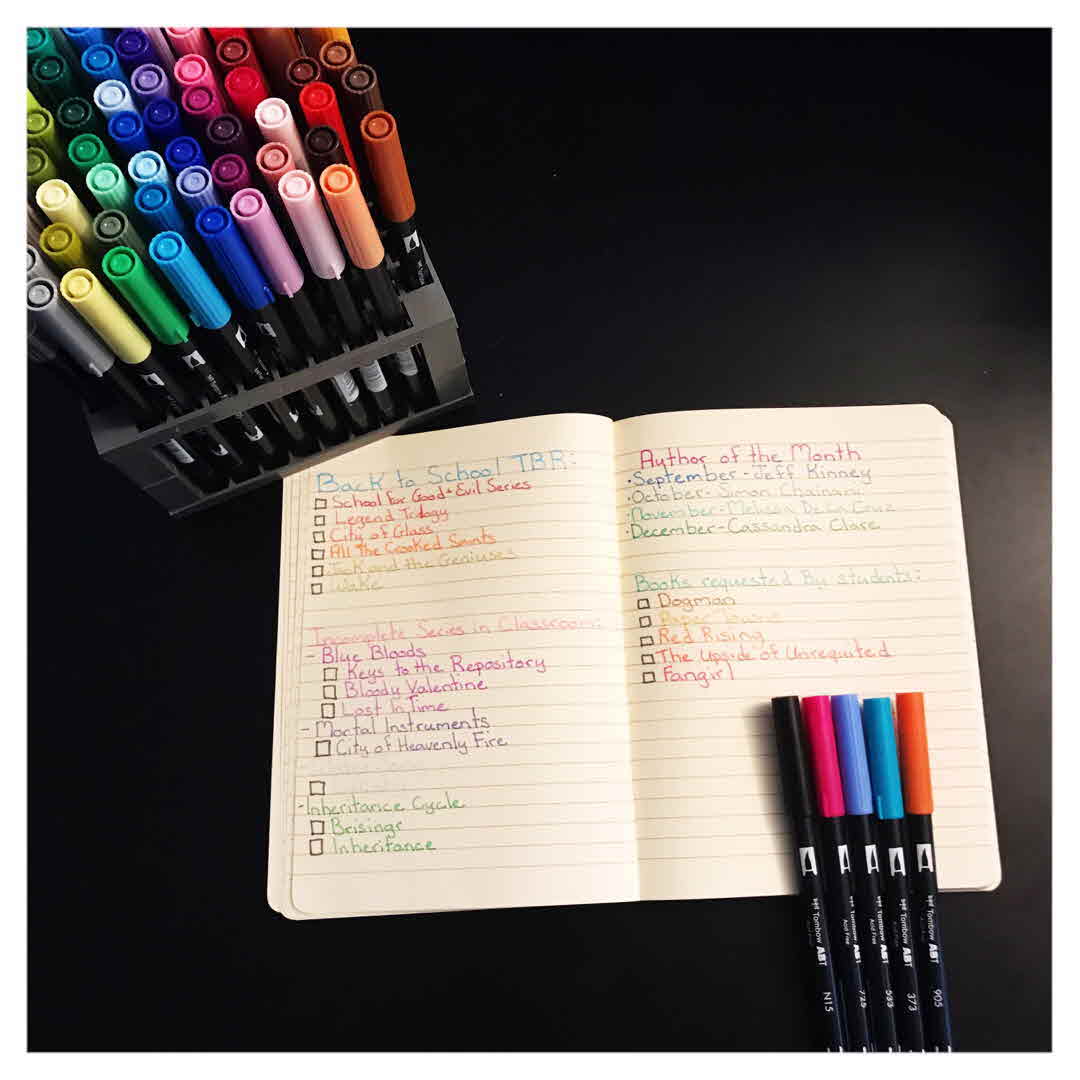 Back to School TBR:
School for Good + Evil Series
Legend Trilogy
City of Glass
All the Crooked Saints
Jack and the Geniuses
Wake
Incomplete Series in Classroom:
- Blue Bloods
Keys to the Repository
Bloody Valentine
Lost In Time
- Mortal Instruments
City of Heavenly Fire
- Inheritance Cycle
Brisingr
Inheritance
Author of the Month
• September - Jeff Kinney
• October - Simon Chainani
• November - Melissa De La Cruz
• December - Cassandra Clare
Books requested By students:
Dogman
Paper Towns
Red Rising
The Upside of Unrequited
Fangirl
Tombow ABT N15
Acid Free
Tombow ABT 725
Acid Free
Tombow ABT 533
Acid Free
Tombow ABT 373
Tombow ABT 905